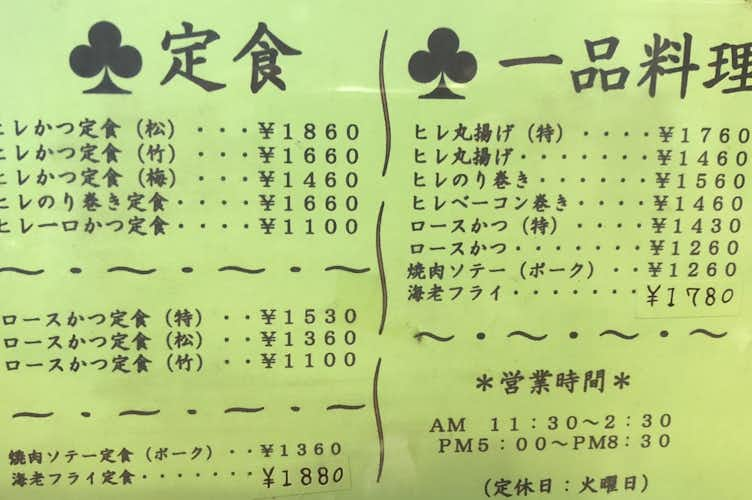 ♣定食
ヒレかつ定食(松)・・・¥1860
ヒレかつ定食(竹)・・・¥1660
ヒレかつ定食(梅)・・・¥1460
ヒレのり巻き定食・・・¥1660
ヒレ一口かつ定食・・・¥1100
ロースかつ定食(特)・・¥1530
ロースかつ定食(松)・・¥1360
ロースかつ定食(竹)・・¥1100
焼肉ソテー定食(ポーク)・・¥1360
海老フライ定食・・・・・・・¥1880
♣一品料理
ヒレ丸揚げ(特)・・・・・¥1760
ヒレ丸揚げ・・・・・・・¥1460
ヒレのり巻き・・・・・・¥1560
ヒレベーコン巻き・・・・¥1460
ロースかつ(特)・・・・・¥1430
ロースかつ・・・・・・・¥1260
焼肉ソテー(ポーク)・・¥1260
海老フライ・・・・・・・¥1780
*営業時間*
AM 11:30〜2:30
PM5:00〜PM8:30
(定休日:火曜日)